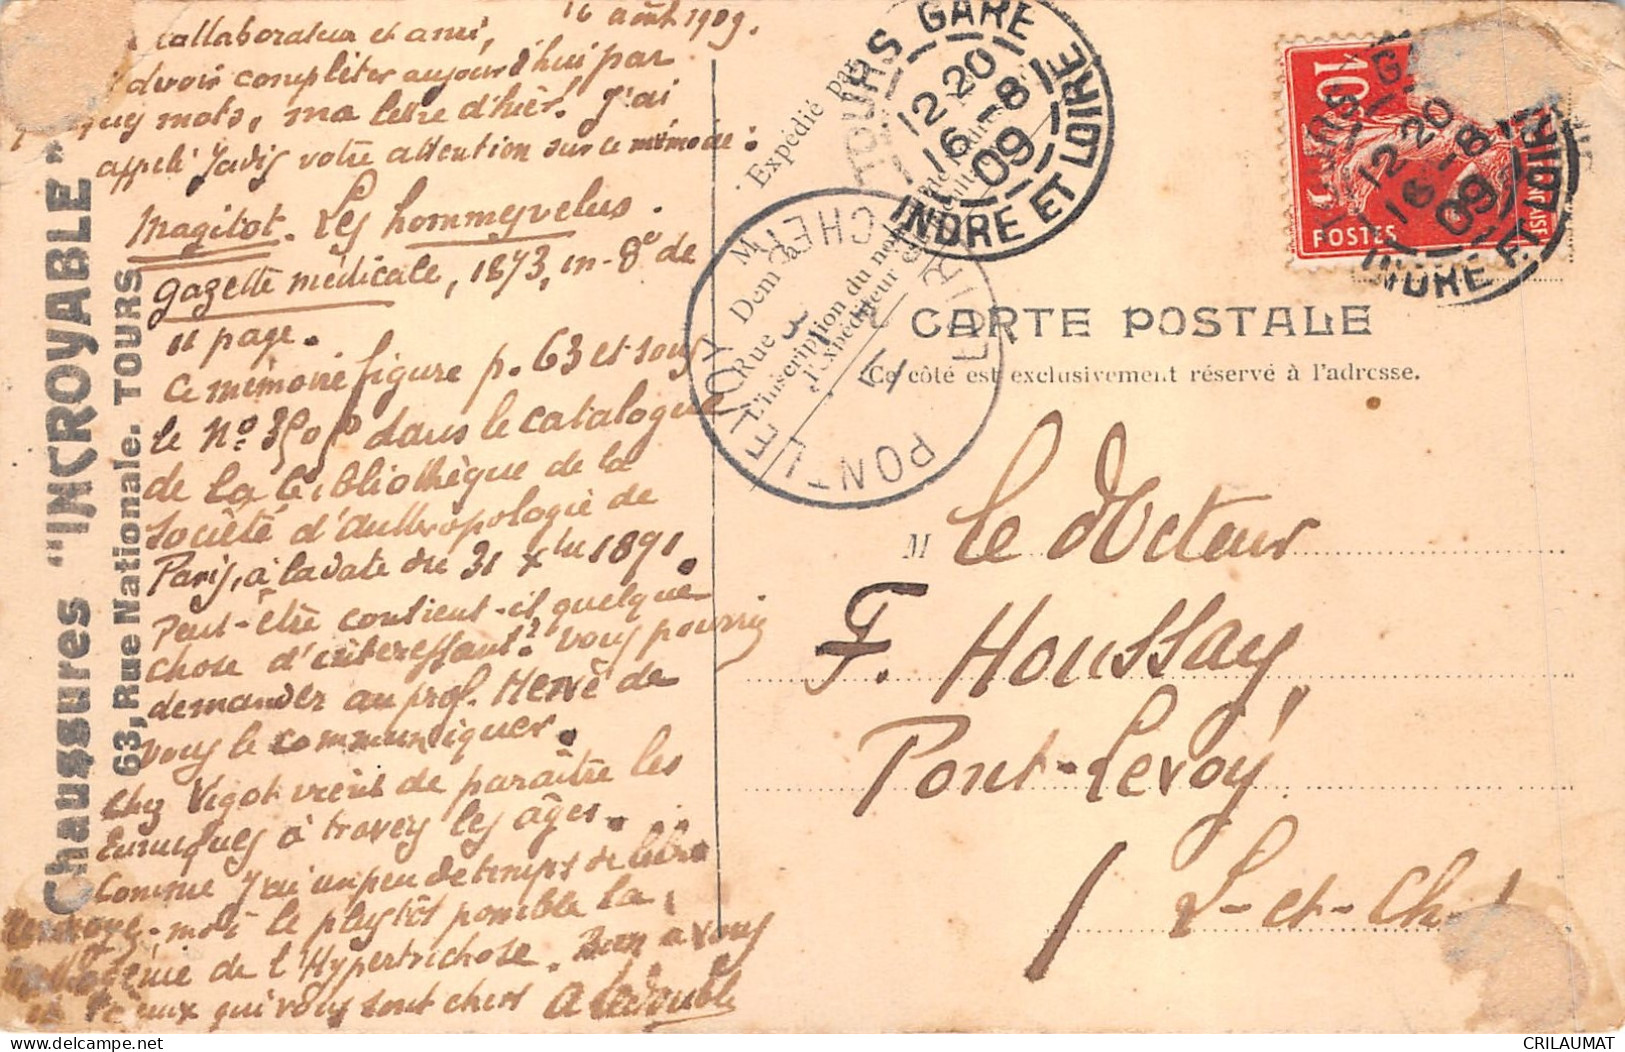 16 août 1909.
collaborateur et ami,
devoir compléter aujourd'hui par
mots, ma lettre d'hier. J'ai
appelé jadis votre attention sur ce mémoire :
Magitot. Les hommes velus.
Gazette médicale, 1873, in-8° de
11 page.
Ce mémoire figure p. 63 et sous
le No. dans le catalogue
de la bibliothèque de la
Société d'Anthropologie de
Paris, à la date du 31 Xbre 1891.
Peut-être contient-il quelque
chose d'intéressant? Vous pourriez
demander au prof. Hervé de
vous le communiquer.
Chez Vigot vient de paraître les
Eunuques à travers les âges.
Comme j'ai un peu de temps de libre
moi le plustôt possible la
de l'Hypertrichose. Bien à vous
et à ceux qui vous sont chers A Ledouble
Chaussures "INCROYABLE"
63, Rue Nationale. TOURS
TOURS GARE
12 20
16 -8
09
INDRE ET LOIRE
Expédié par
M
Dem t à
Rue
L'inscription du nom
l'expéditeur est
PONTLEVOY
LOIR ET CHER
10
POSTES
TOURS GARE
12 20
16 -8
09
INDRE ET LOIRE
CARTE POSTALE
Ce côté est exclusivement réservé à l'adresse.
M le docteur
F. Houssay,
Pont-Levoy
L-et-Ch.
CRILAUMAT